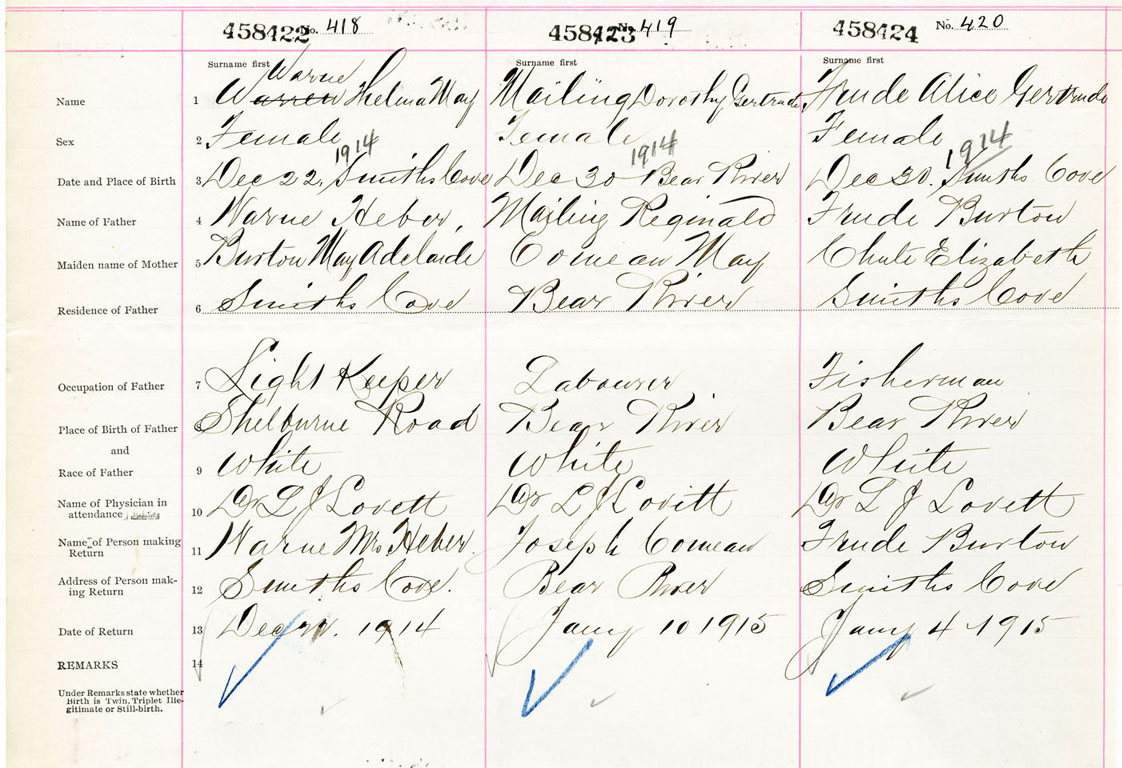 458422 No. 418 458423 No. 419 458424 No. 420
Surname first Surname first Surname first
Warne
Name 1 Warren Thelma May Mailing Dorothy Gertrude Frude Alice Gertrude
Sex 2 Female Female Female
1914 1914 1914
Date and Place of Birth 3 Dec 22, Smiths Cove Dec 30 Bear River Dec 30. Smiths Cove
Name of Father 4 Warne Heber, Mailing Reginald Frude Burton
Maiden name of Mother 5 Burton May Adelaide Comeau May Chute Elizabeth
Residence of Father 6 Smiths Cove Bear River Smiths Cove
Occupation of Father 7 Light Keeper Labourer Fisherman
Place of Birth of Father 8 Shelburne Road Bear River Bear River
and
Race of Father 9 White White White
Name of Physician in
attendance 10 Dr L J Lovett Dr L J Lovitt Dr L J Lovett
Name of Person making
Return 11 Warne Mrs Heber. Joseph Comeau Frude Burton
Address of Person mak-
ing Return 12 Smiths Cove. Bear River Smiths Cove
Date of Return 13 Dec 1914 Jany 10 1915 Jany 4 1915
REMARKS 14
Under Remarks state whether
Birth is Twin, Triplet Ille-
gitimate or Still-birth.